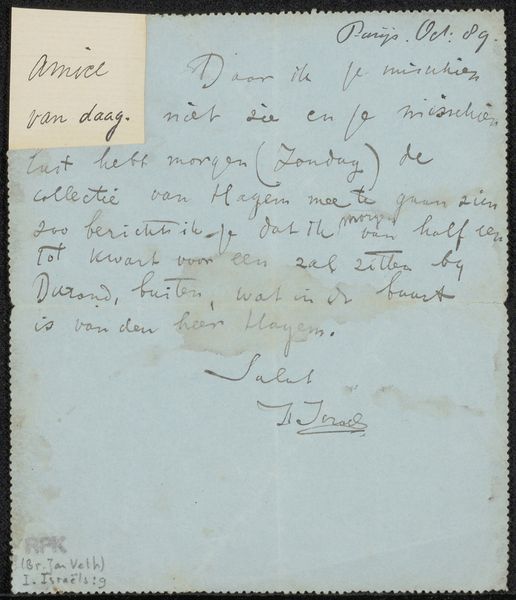 Parijs. Oct: 89.
Amice Daar ik je misschien
van daag. niet zie en je misschien
lust hebt morgen (Zondag) de
collectie van Hayem mee te gaan zien
zoo bericht ik je dat ik morgen van half een
tot kwart voor een zal zitten by
Durand, buiten, wat in de buurt
is van den heer Hayem.
Salut
I Israels
RPK
(Br. Jan Veth)
I. Israëls: 9